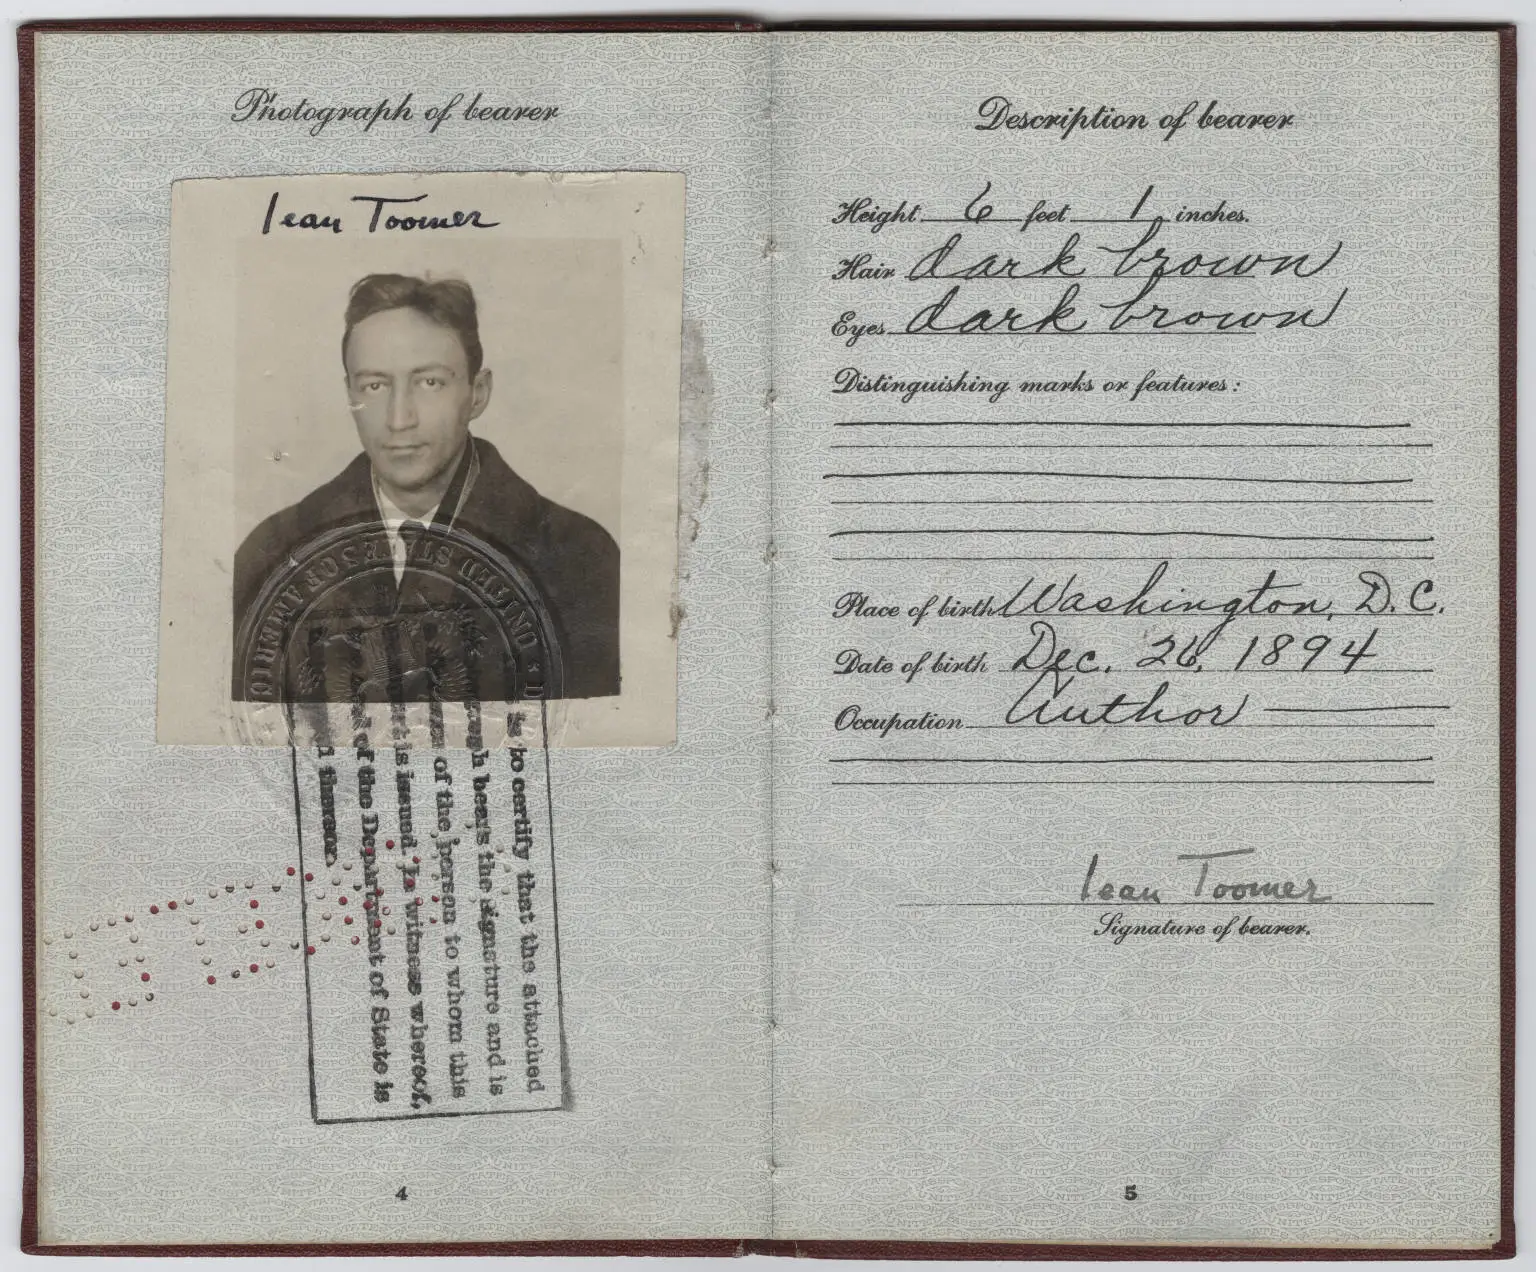 Photograph of bearer
Jean Toomer
UNITED STATES OF AMERICA
is to certify that the attached
bears the signature and is
of the person to whom this
is issued. In witness whereof,
seal of the Department of State is
thereon
4
Description of bearer
Height 6 feet 1 inches.
Hair dark brown
Eyes dark brown
Distinguishing marks or features:
Place of birth Washington, D.C.
Date of birth Dec. 26, 1894
Occupation Author
Jean Toomer
Signature of bearer.
5